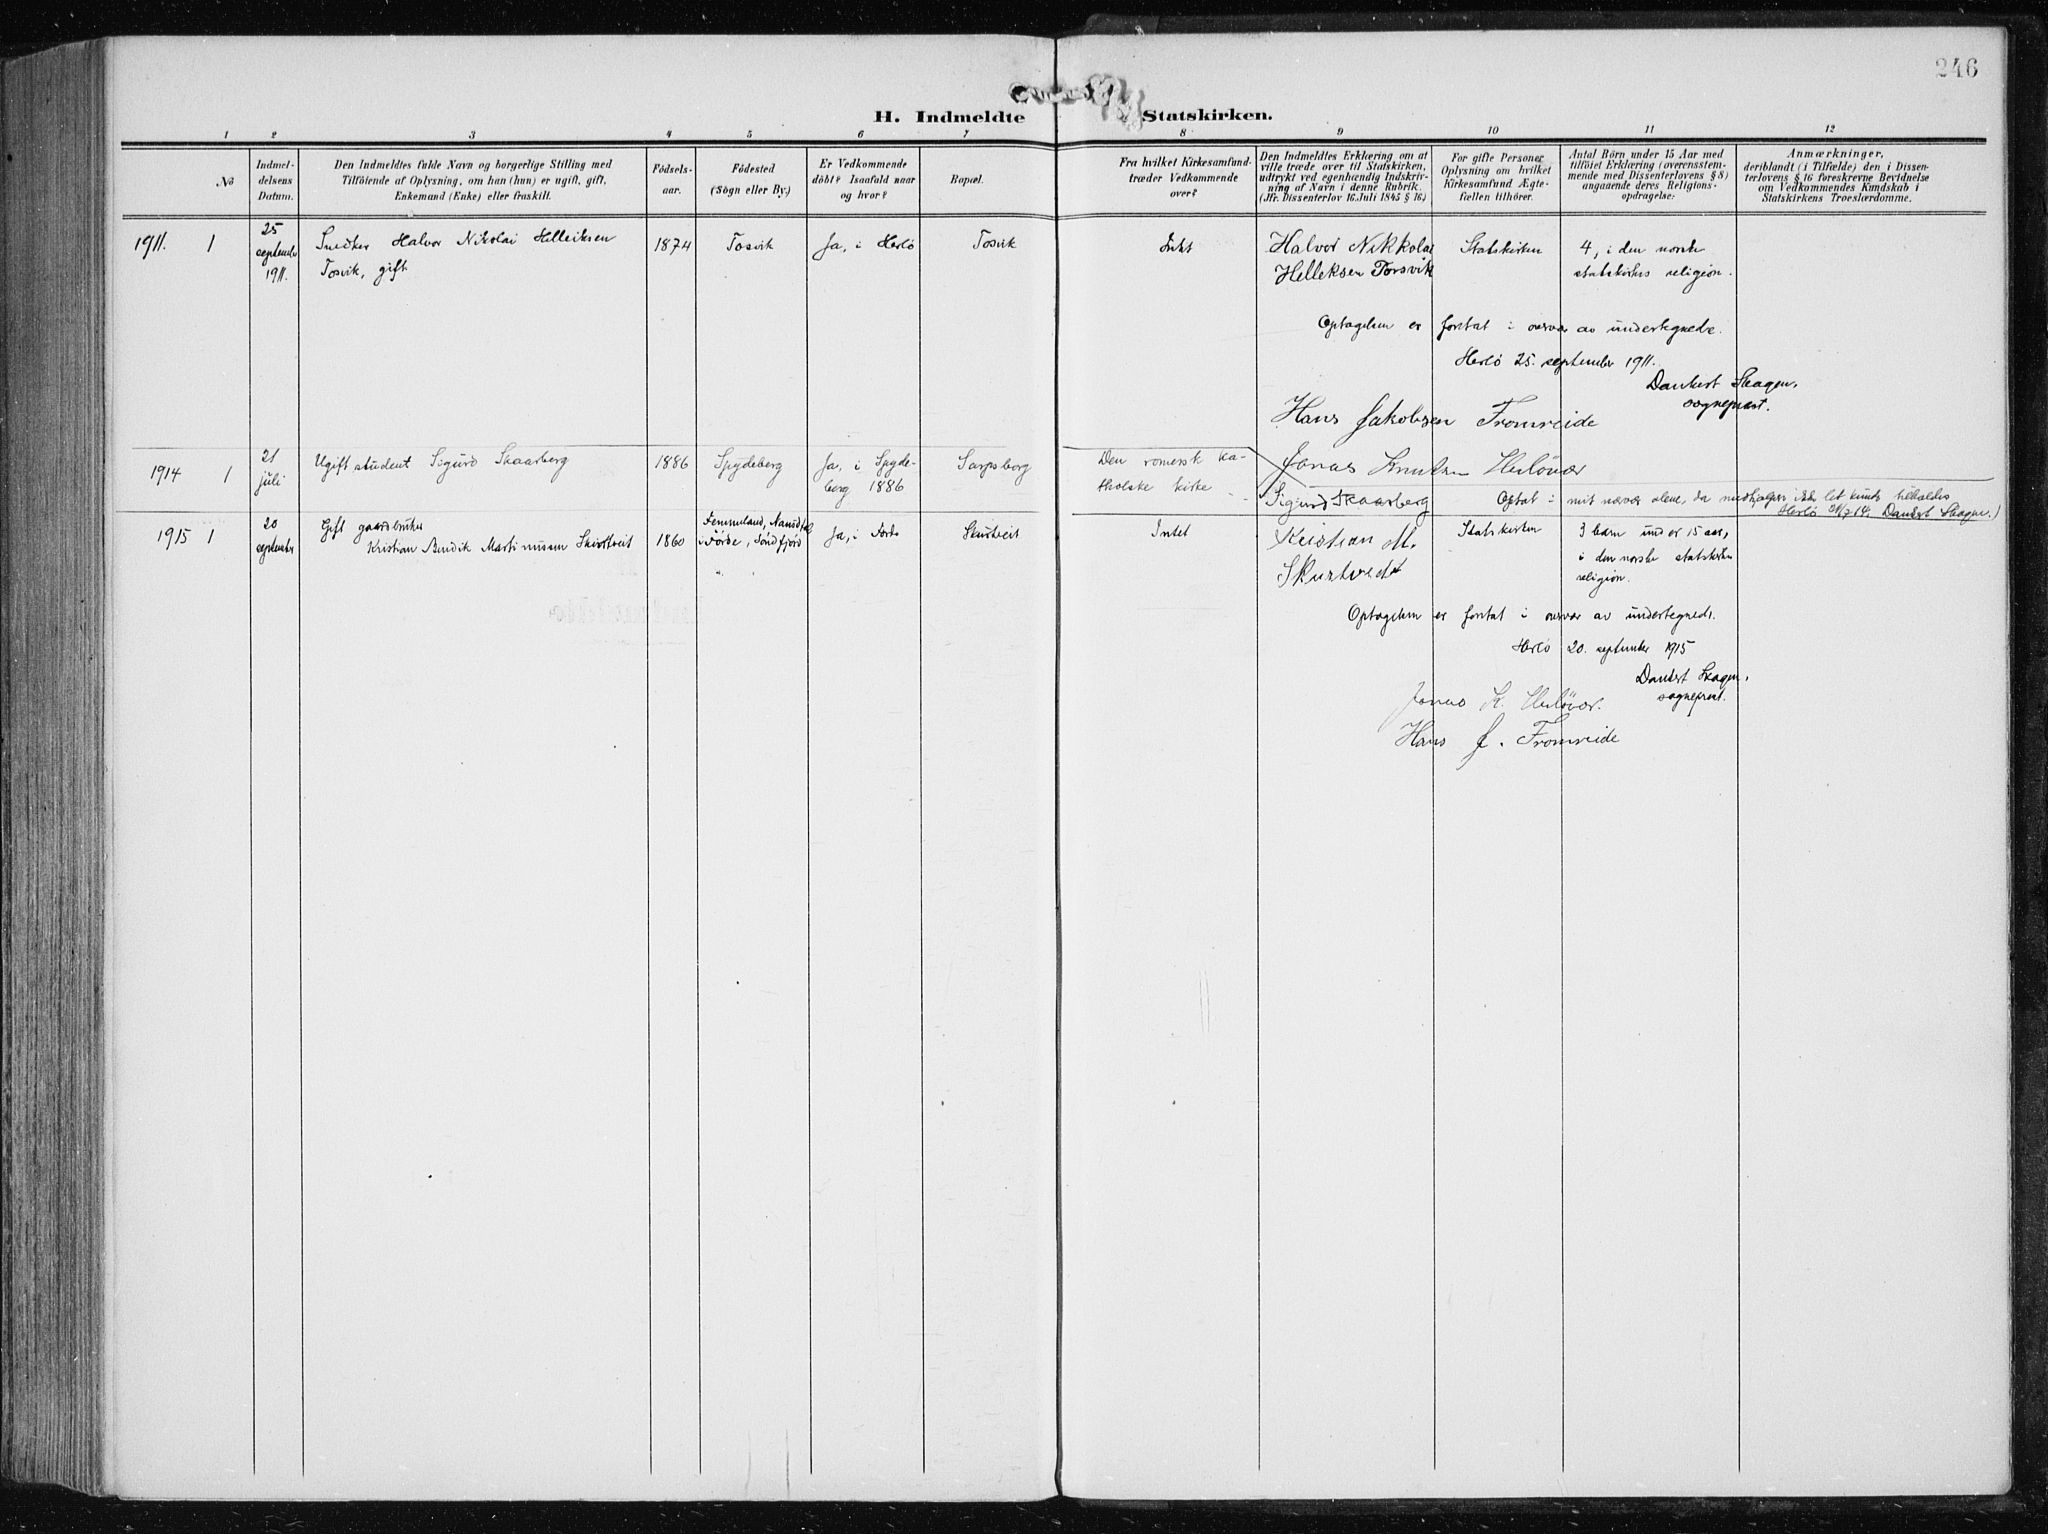 246
H. Indmeldte
Statskirken.
1 2 3 4 5 6 7 8 9 10 11 12
No
Indmel-
delsens
Datum.
Den Indmeldtes fulde Navn og borgerlige Stilling med
Tilföiende af Oplysning, om han (hun) er ugift, gift,
Enkemand (Enke) eller fraskilt.
Födsels-
aar.
Födested
(Sögn eller By.)
Er Vedkommende
döbt? Isaafald naar
og hvor?
Bopæl.
Fra hvilket Kirkesamfund-
træder Vedkommende
over?
Den Indmeldtes Erklæring om at
ville træde over til Statskirken,
udtrykt ved egenhændig Indskriv-
ning af Navn i denne Rubrik.
(Jfr. Dissenterlov 16. Juli 1845 § 16.)
For gifte Personer
Oplysning om hvilket
Kirkesamfund Ægte-
fællen tilhörer.
Antal Börn under 15 Aar med
tilföiet Erklæring (overensstem-
mende med Dissenterlovens § 8)
angaaende deres Religions-
opdragelse:
Anmærkninger,
deriblandt (i Tilfælde) den i Dissen-
terlovens § 16 foreskrevne Bevidnelse
om Vedkommendes Kundskab i
Statskirkens Troeslærdomme.
1911. 1
25
september
1911.
Snedker Halvor Nikolai Helleiksen
Tosvik, gift
1874
Tosvik
Ja, i Herlö
Tosvik
Intet
Halvor Nikkolai
Helleksen Torsvik
Statskirken
4, i den norske
statskirkes religion.
Optagelsen er foretat i overvær av undertegnede.
Herlö 25. september 1911.
Dankert Skagen,
sogneprest.
Hans Jakobsen Fromreide
Jonas Knutsen Herlövær
1914 1
21
juli
Ugift student Sigurd Skaarberg
1886
Spydeberg
Ja, i Spyde-
berg 1886
Sarpsborg
Den romersk ka-
tholske kirke
Sigurd Skaarberg
Optat i mit nærvær alene, da medhjælpere ikke let kunde tilkaldes
Herlö 21/7 14. Dankert Skagen.
1915 1
20
september
Gift gaardbruker
Kristian Bendik Martinussen Skurtveit
1860
i Förde, Söndfjord
Ja, i Förde
Skurtveit
Intet
Kristian M.
Skurtvedt
Statskirken
3 barn under 15 aar,
i den norske statskirkes
religion.
Optagelsen er foretat i overvær av undertegnede.
Herlö 20. september 1915
Dankert Skagen,
sogneprest.
Jonas K. Herlövær.
Hans J. Fromreide